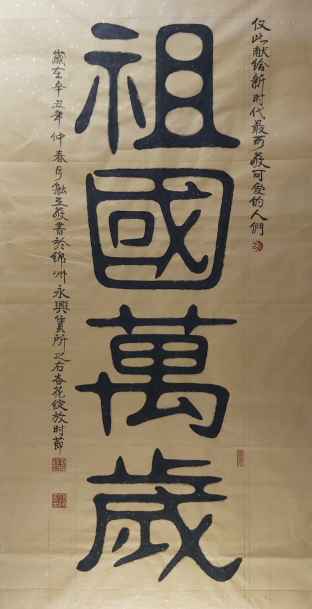 仅此献给新时代最可敬可爱的人們
祖國萬歲
歲在辛丑年仲春月融立敬書於錦州永興賃所之右杏花綻放时節